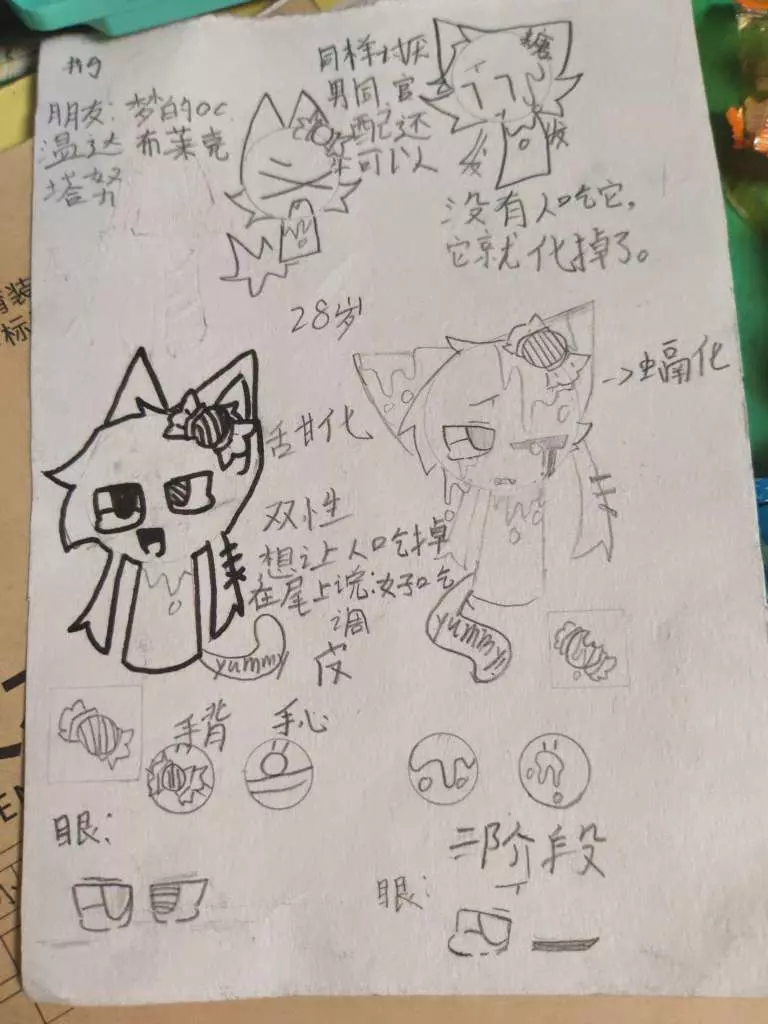 朋友：梦的oc
温达 布莱克
塔努
同样讨厌
男同 官
配还
可以人
糖
没有人吃它，
它就化掉了。
28岁
舌甘化
双性
想让人吃掉
在尾上说：好吃
调
皮
yummy
→蝠化
yummy
手背
手心
眼：
二阶段
眼：